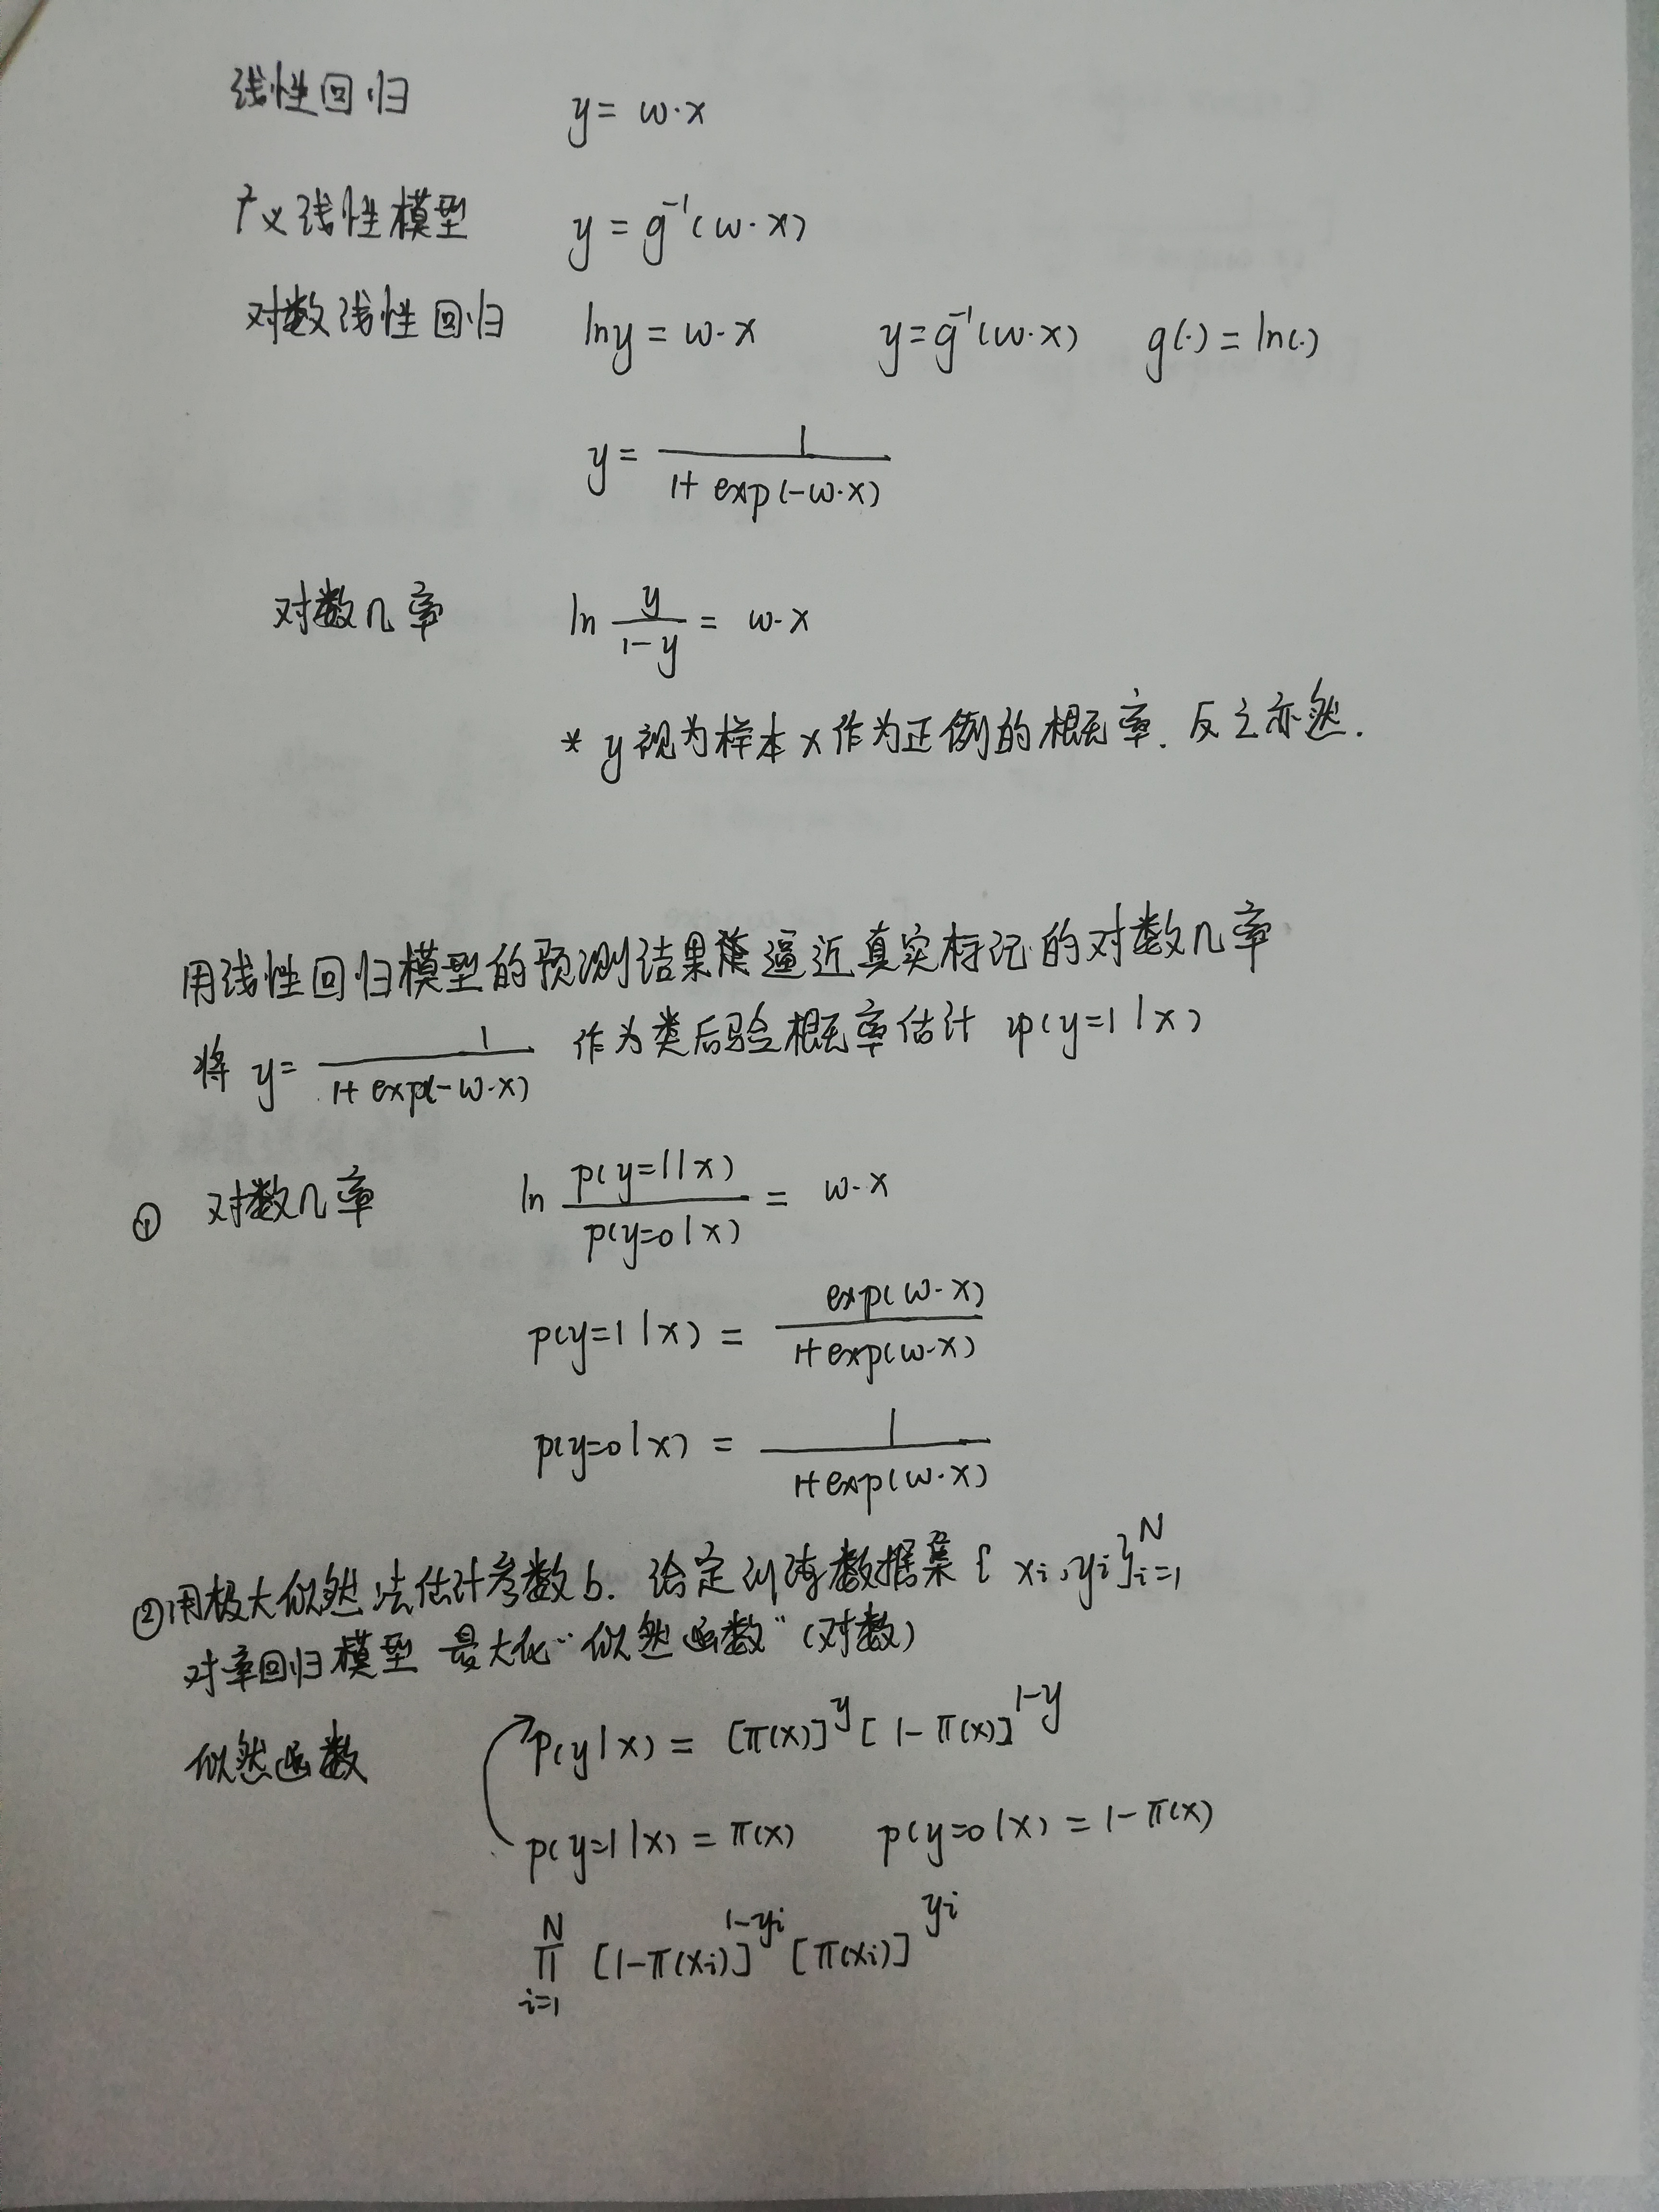 线性回归 y = w·x
广义线性模型 y = g⁻¹(w·x)
对数线性回归 lny = w·x y=g⁻¹(w·x) g(·) = ln(·)
y = 1/(1+exp(-w·x))
对数几率 ln y/(1-y) = w·x
* y视为样本x作为正例的概率. 反之亦然.
用线性回归模型的预测结果 逼近真实标记的对数几率
将 y= 1/(1+exp(-w·x)) 作为类后验概率估计 p(y=1|x)
① 对数几率 ln p(y=1|x)/p(y=0|x) = w·x
p(y=1|x) = exp(w·x)/(1+exp(w·x))
p(y=0|x) = 1/(1+exp(w·x))
②用极大似然法估计参数b. 给定训练数据集{xi,yi}ᴺᵢ₌₁
对率回归模型 最大化“似然函数”(对数)
似然函数 p(y|x) = [π(x)]^y [1-π(x)]^(1-y)
p(y=1|x) = π(x) p(y=0|x) = 1-π(x)
∏ᴺᵢ₌₁ [1-π(xi)]^(1-yi) [π(xi)]^yi